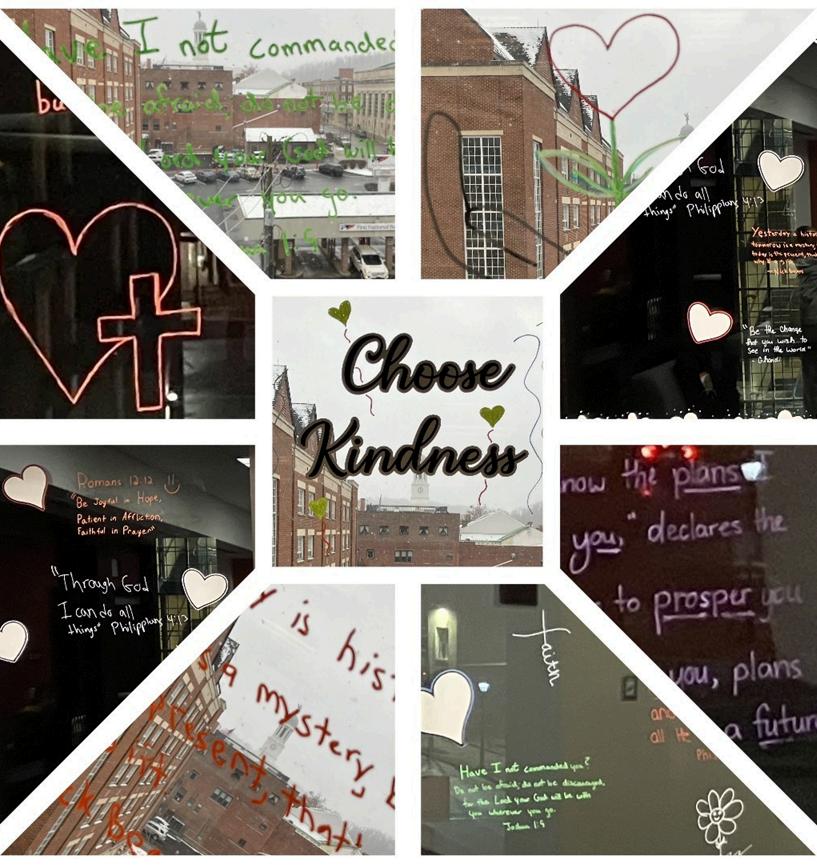 have I not commanded
be afraid, do not be
Lord your God will
ver you go.
1:9
bu
God
can do all
things" Philippians 4:13
Yesterday is
tomorrow is a mystery,
today is the present, that
"Be the Change
that you wish to
See in the World"
Ghandi
Choose
Kindness
Romans 12:12
"Be Joyful in Hope,
Patient in Affliction,
Faithful in Prayer"
"Through God
I can do all
things" Philippians 4:13
now the plans I
you," declares the
to prosper you
you, plans
a future
y is his
s a mystery,
present, that'
Faith
and
all He
Phi
Have I not commanded you?
Do not be afraid; do not be discouraged,
for the Lord your God will be with
you wherever you go.
Joshua 1:9